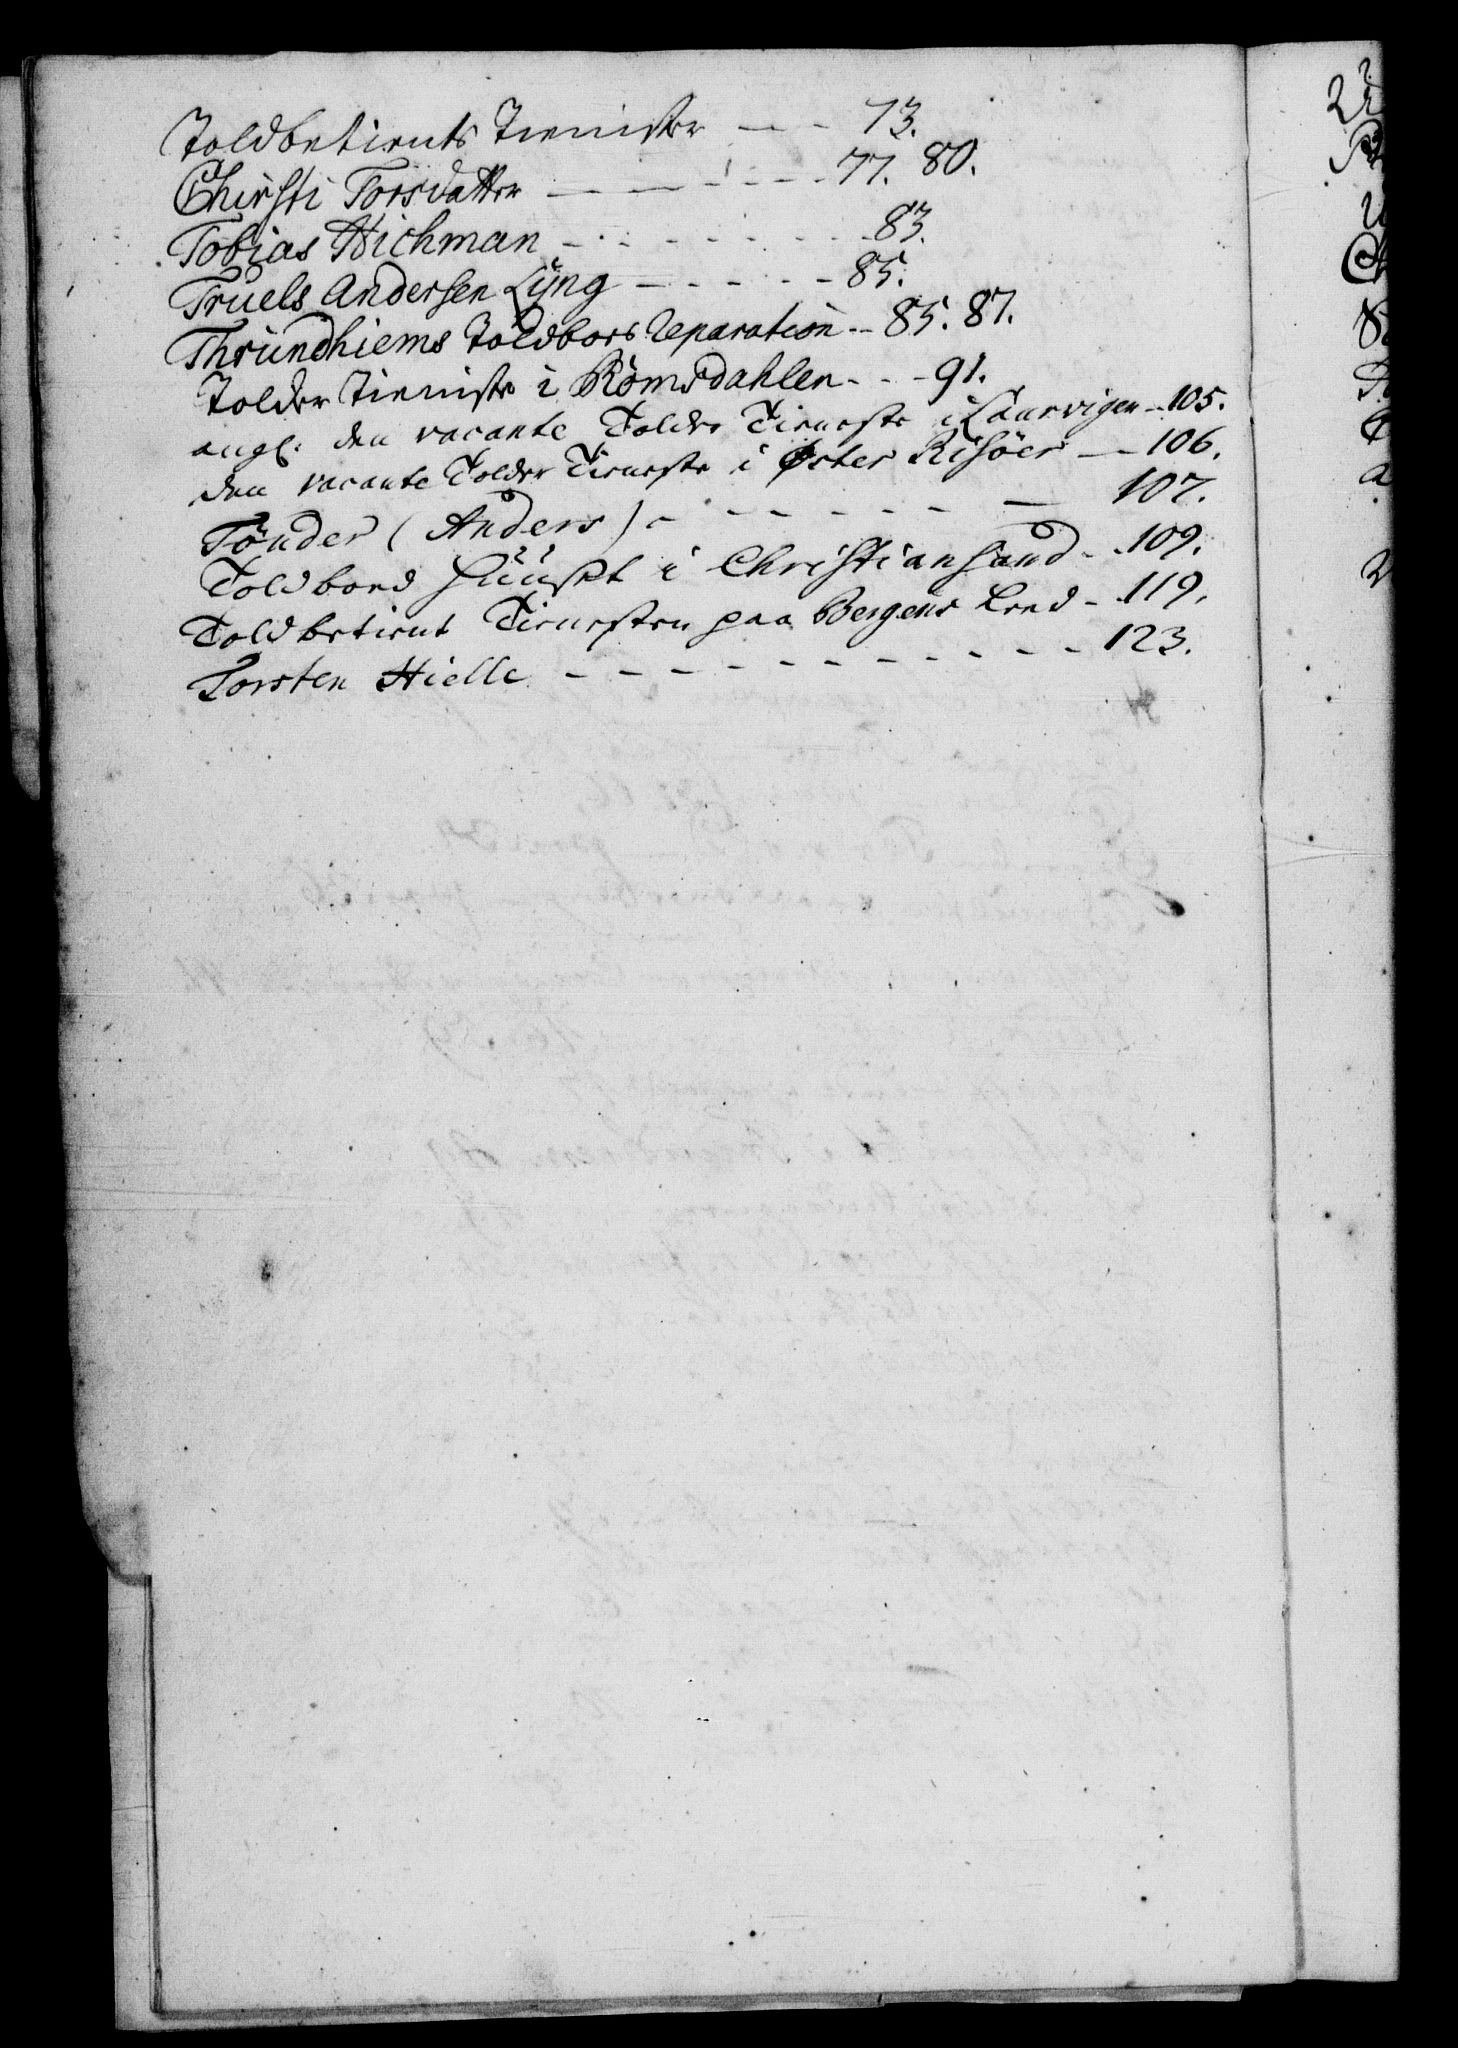 Toldbetients Tienister — — - 73.
Chirsti Torsdatter — — - - - - 77. 80.
Tobias Hichman - - - - - - - - 83.
Truels Andersen Lÿng — - - - - 85.
Thrundhiems Toldbors Reparation -- 85. 87.
Tolder Tieniste i Romsdahlen - - - 91.
angl: den vacante Tolder Tieneste i Laurvigen -- 105.
den vacante Tolder Tieneste i Øster Risöer — 106.
Tönder (Anders) - - - - - - - — 107.
Toldbord Huuset i Christiansand - - 109.
Toldbetient Tienesten paa Bergens Leed - 119.
Torsten Hielle - - - - - - - - - - - 123.